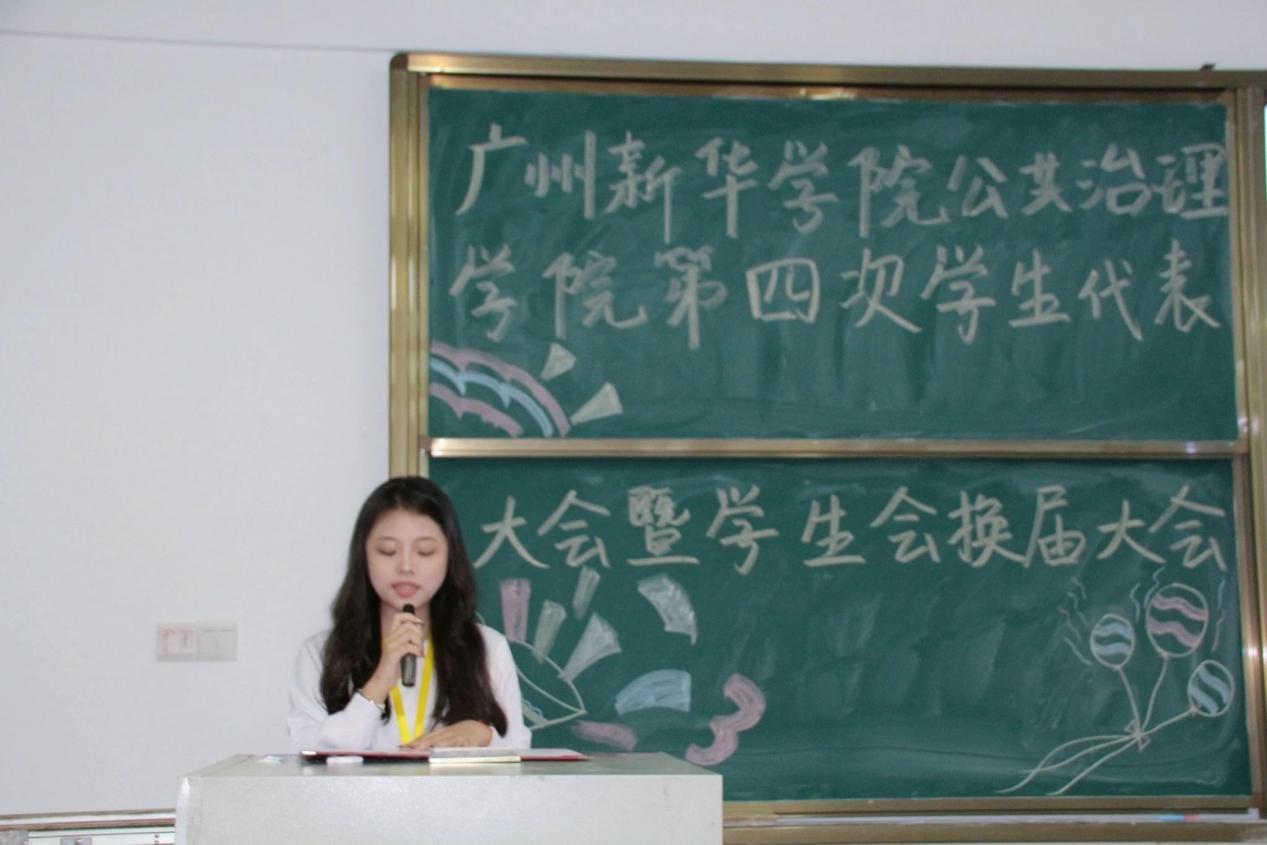 广州新华学院公共治理
学院第四次学生代表
大会暨学生会换届大会